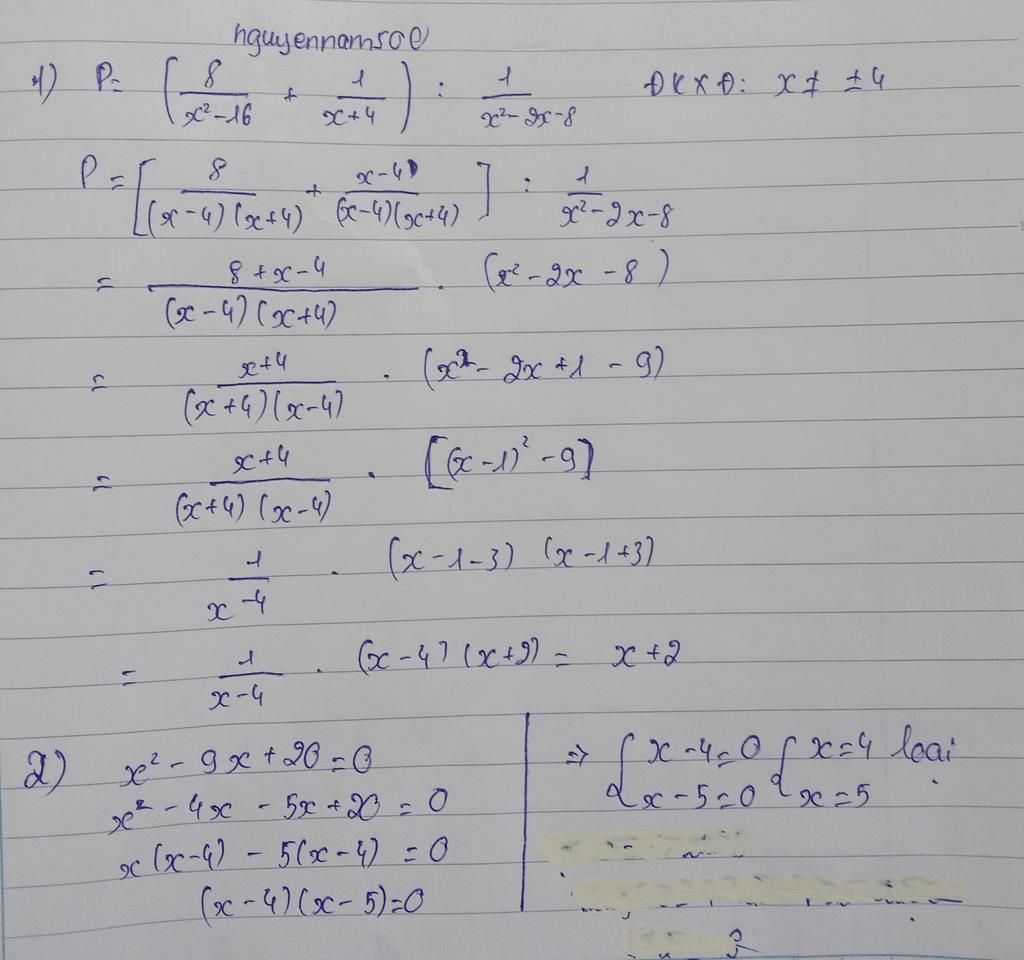 nguyennam500
1) P= (8/(x²-16) + 1/(x+4)) : 1/(x²-2x-8) ĐKXĐ: x≠ ±4
P = [8/((x-4)(x+4)) + (x-4)/((x-4)(x+4))] : 1/(x²-2x-8)
= (8+x-4)/((x-4)(x+4)) . (x²-2x-8)
= (x+4)/((x+4)(x-4)) . (x²-2x+1-9)
= (x+4)/((x+4)(x-4)) . [(x-1)²-9]
= 1/(x-4) . (x-1-3) (x-1+3)
= 1/(x-4) . (x-4)(x+2) = x+2
2) x²-9x+20=0
x²-4x-5x+20=0
x(x-4)-5(x-4)=0
(x-4)(x-5)=0
=> { x-4=0 { x=4 loại
x-5=0 x=5